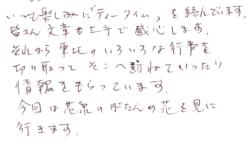 いつも楽しみに"ティータイム"を読んでいます。
皆さん文章が上手で感心します。
それから東北のいろいろな行事を
切り取って そこへ訪ねていったり
情報をもらっています。
今回は花泉のぼたんの花を見に
行きます。